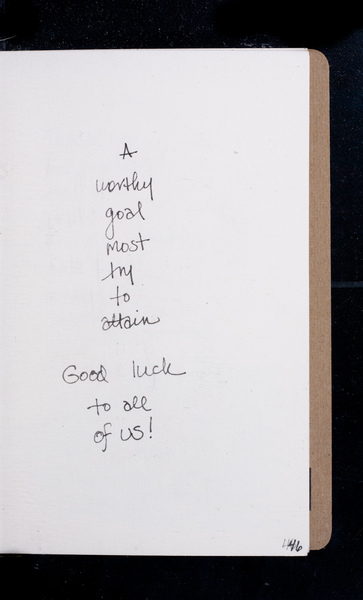 A
worthy
goal
most
try
to
attain
Good luck
to all
of us!
446